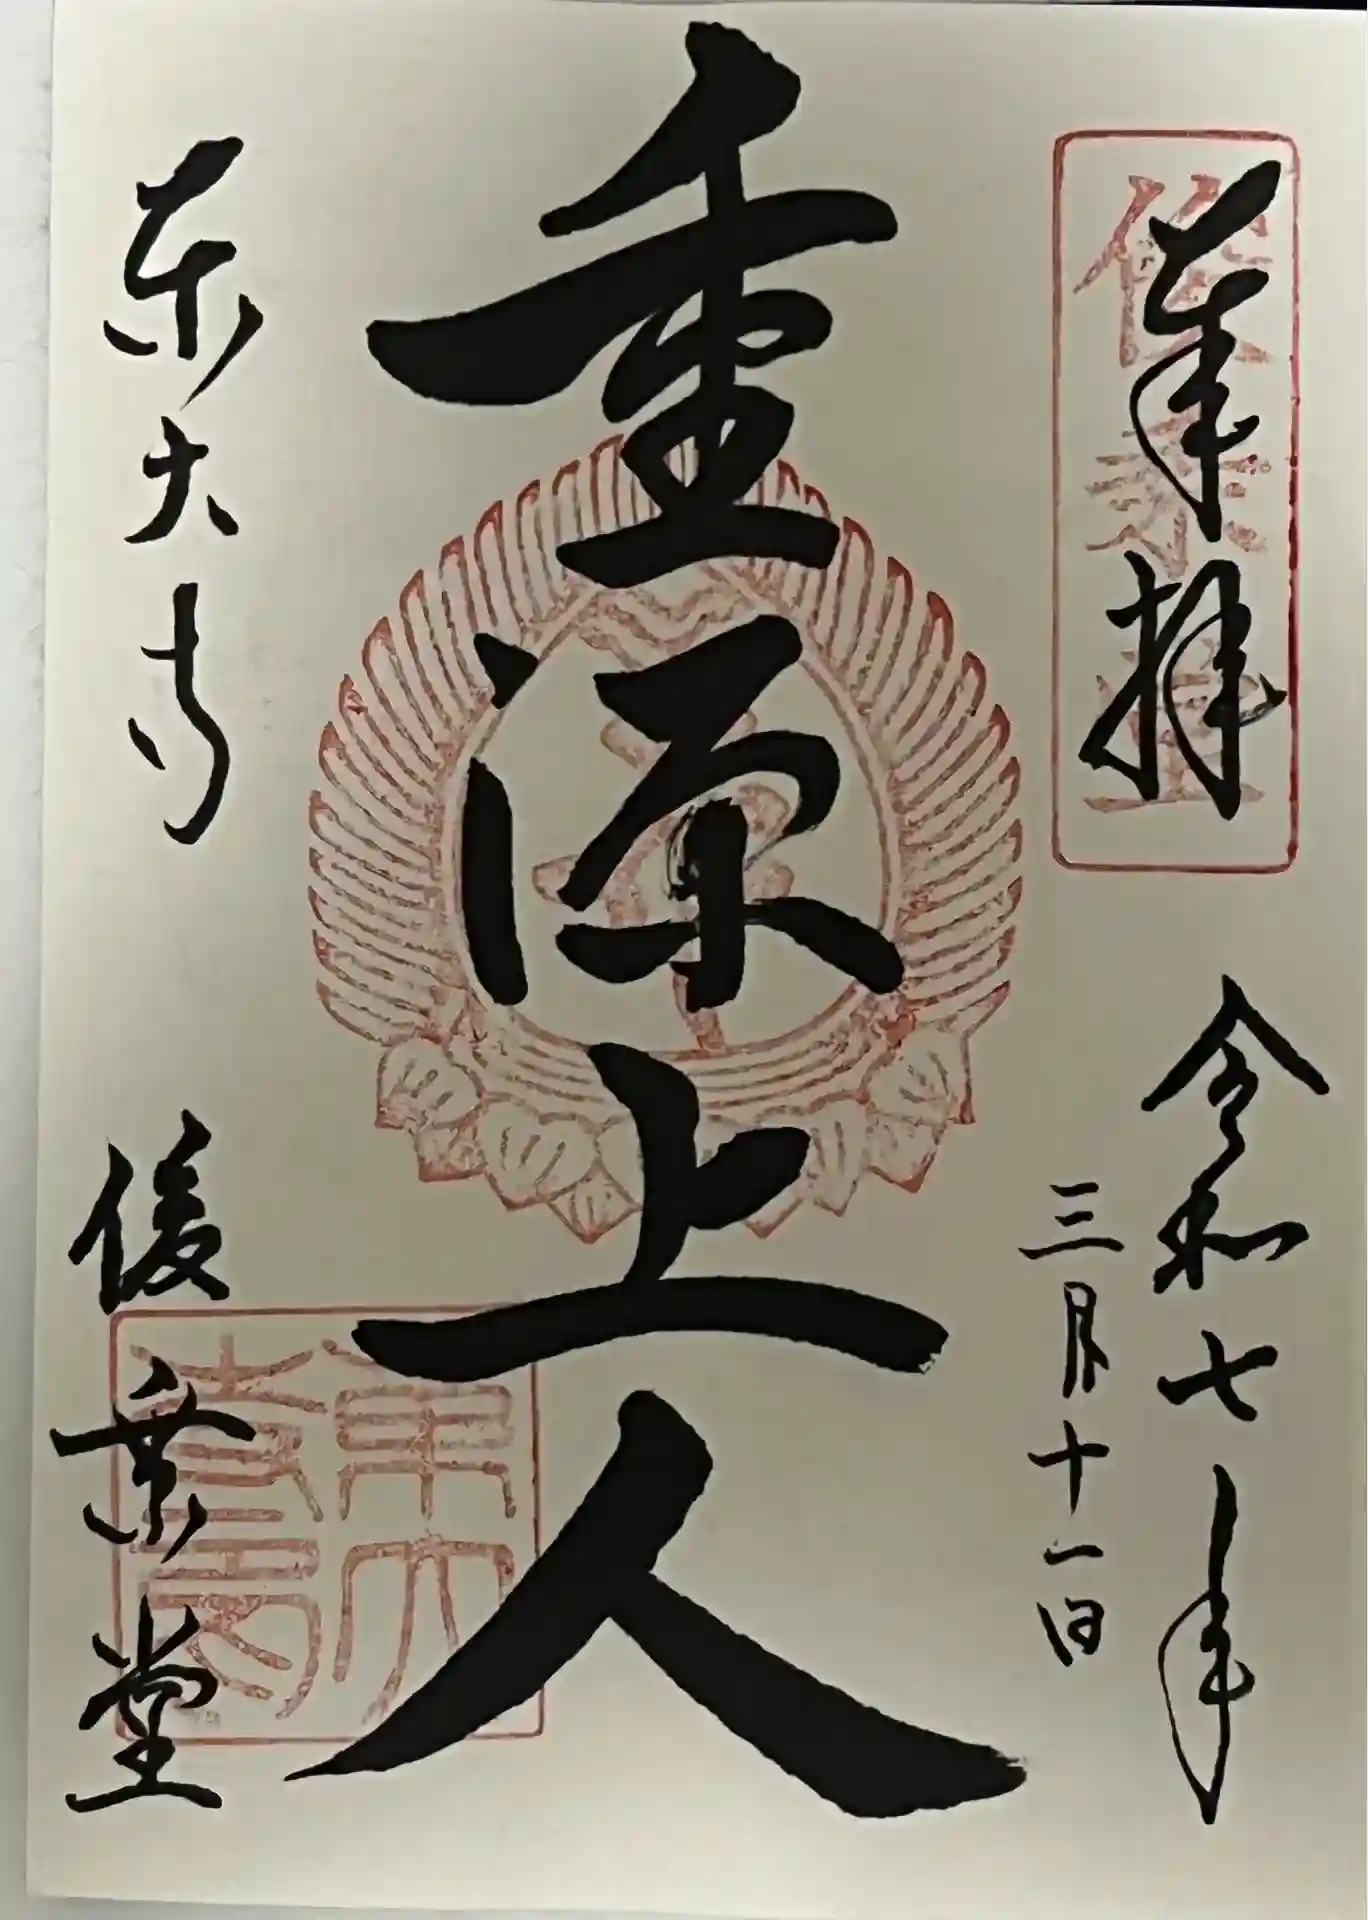 奉拝
俊乗堂
令和七年
三月十一日
重源上人
東大寺
俊乗堂
東大寺